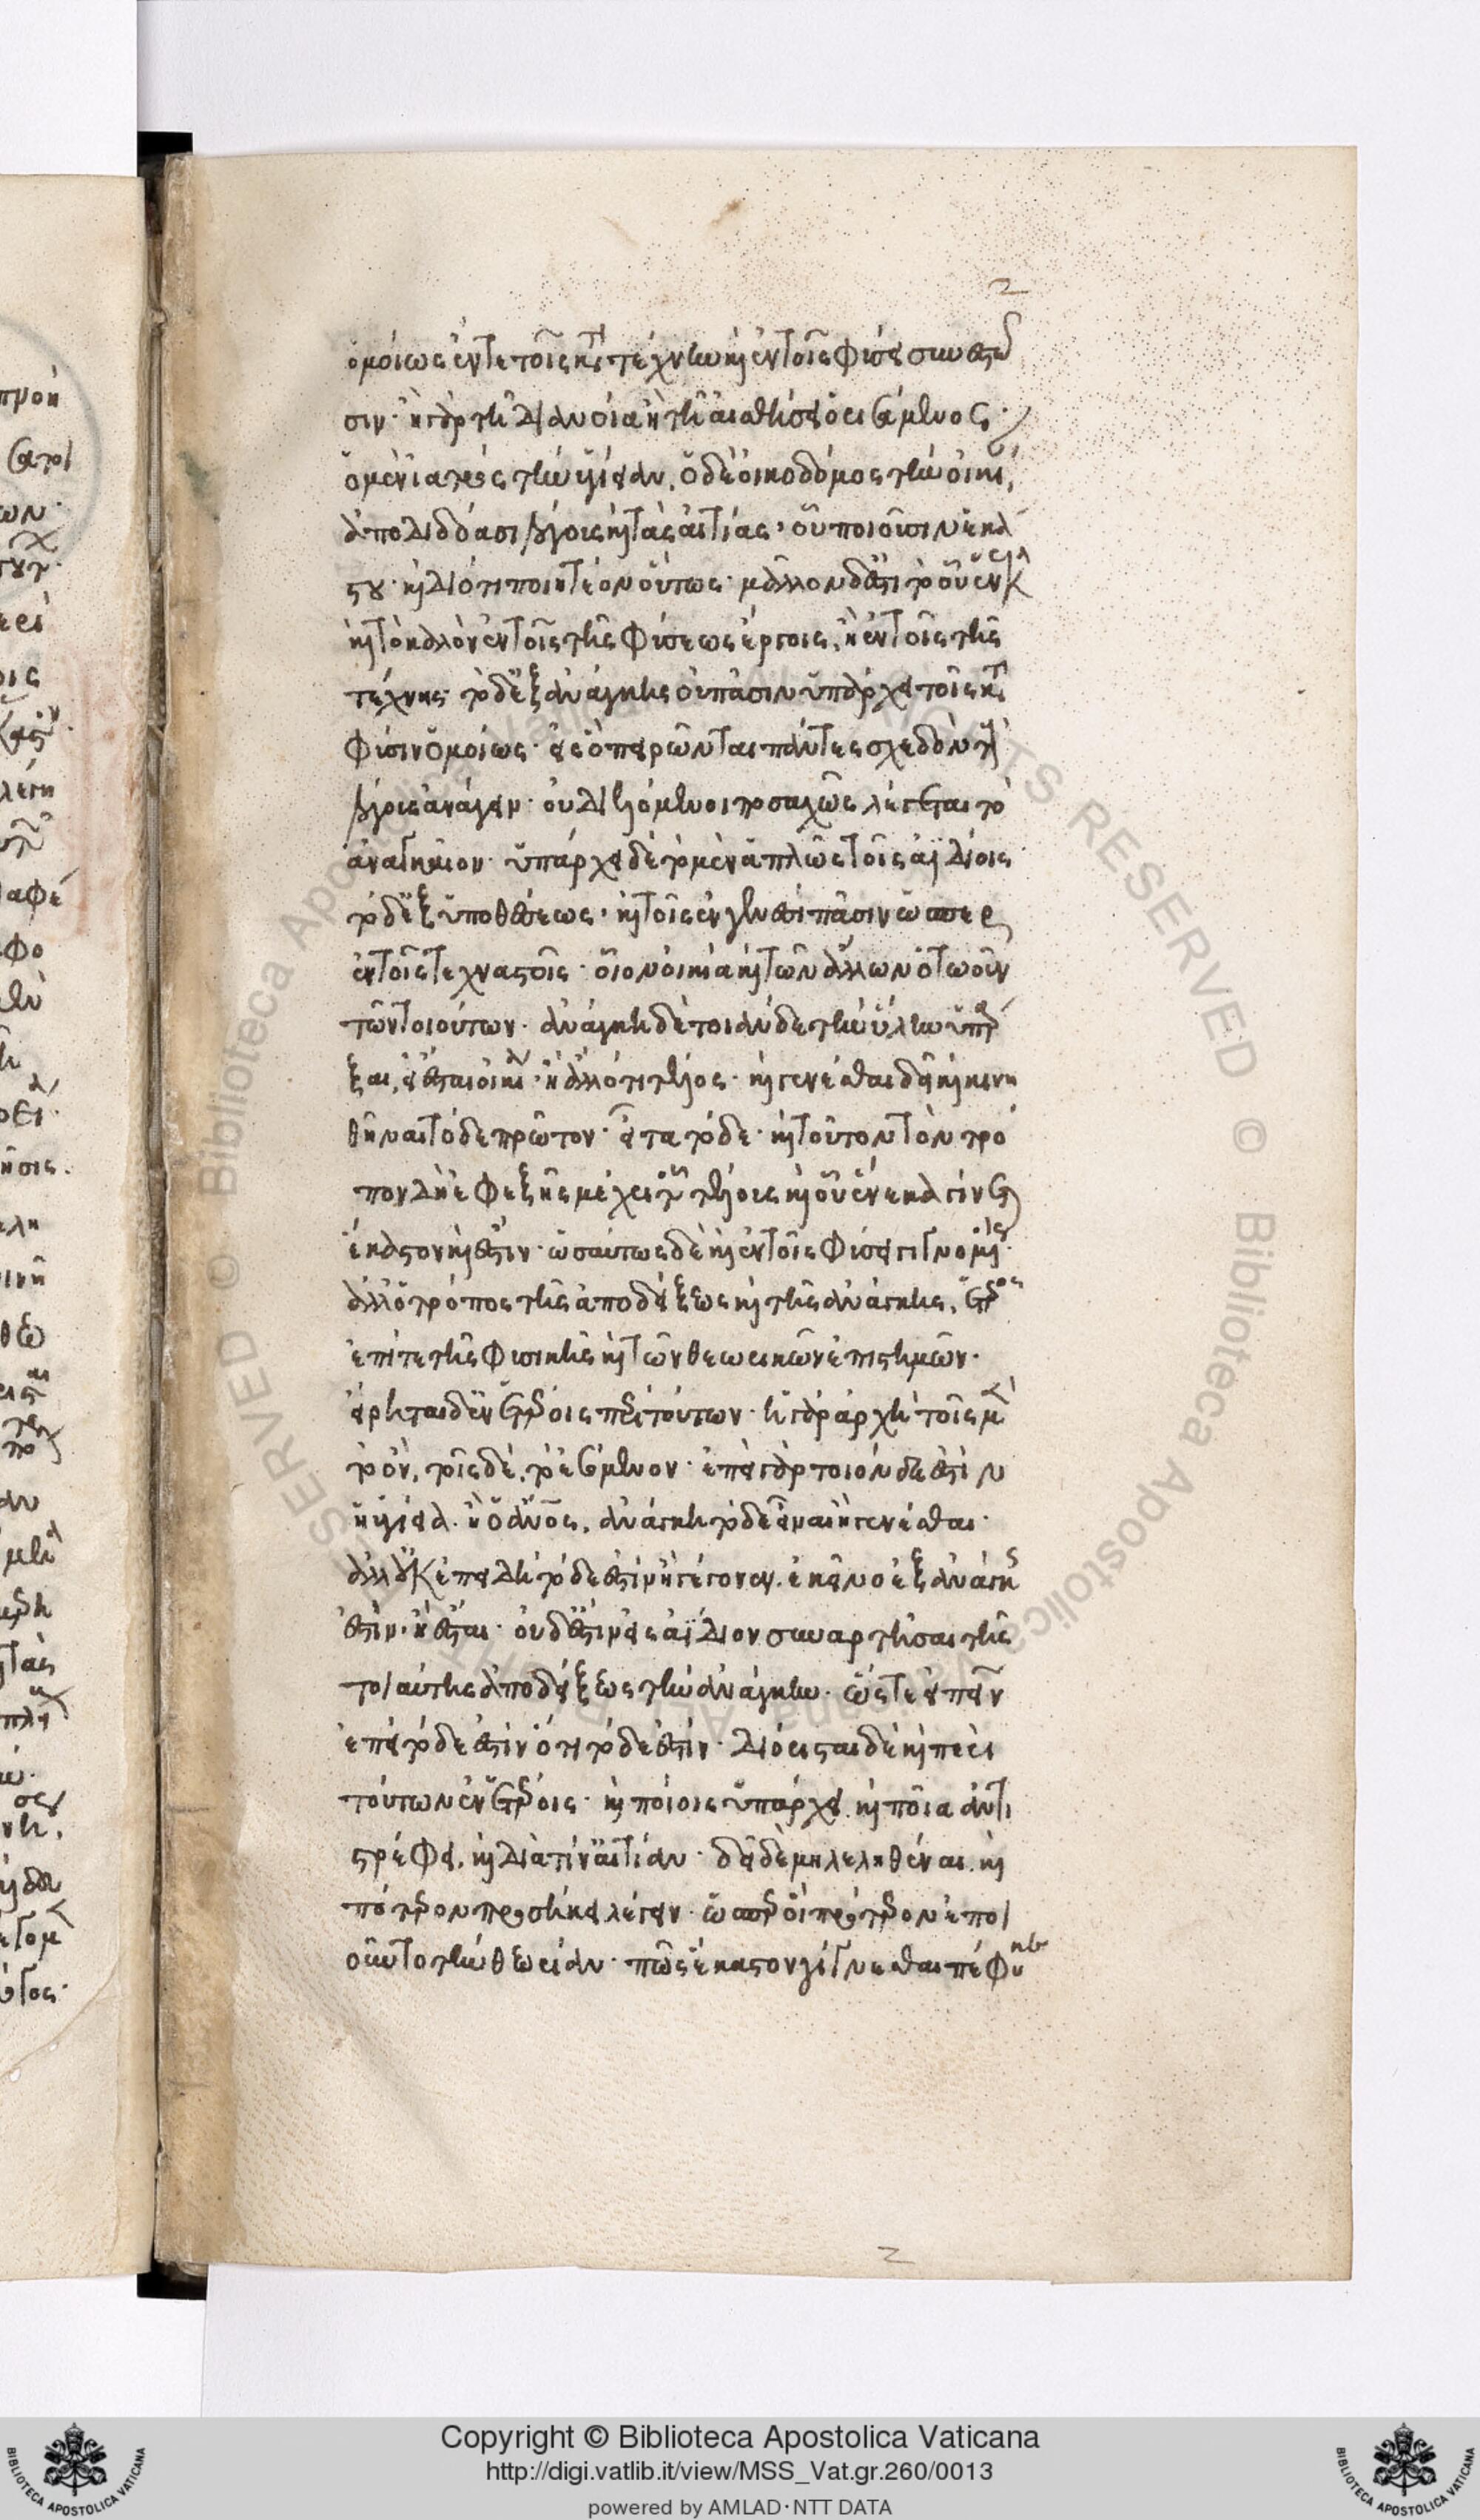 2
ὁμοίως ἔν τε τοῖς κατὰ τέχνην καὶ ἐν τοῖς φύσει συνεστῶ
σιν· ἢ γὰρ τῇ διανοία ἢ τῇ αἰσθήσει ὁρισάμενος·
ὁ μὲν ἰατρὸς τὴν ὑγίειαν, ὁ δὲ οἰκοδόμος τὴν οἰκίαν,
ἀποδιδόασι λόγους καὶ τὰς αἰτίας· οὗ ποιοῦσιν ἑκά
στου· καὶ διότι ποιητέον οὕτως· μᾶλλον δ' ἐστὶ τὸ οὗ ἕνεκα
καὶ τὸ καλὸν ἐν τοῖς τῆς φύσεως ἔργοις, ἢ ἐν τοῖς τῆς
τέχνης· τὸ δ' ἐξ ἀνάγκης οὐ πᾶσιν ὑπάρχει τοῖς κατὰ
φύσιν ὁμοίως· εἰς ὃ πειρῶνται πάντες σχεδὸν τοὺς
λόγους ἀνάγειν· οὐ διελόμενοι ποσαχῶς λέγεται τὸ
ἀναγκαῖον· ὑπάρχει δὲ τὸ μὲν ἁπλῶς τοῖς ἀϊδίοις
τὸ δ' ἐξ ὑποθέσεως· καὶ τοῖς ἐν γενέσει πᾶσιν ὥσπερ
ἐν τοῖς τεχναστοῖς· οἷον οἰκία καὶ τῶν ἄλλων ὁτωοῦν
τῶν τοιούτων· ἀνάγκη δὲ τοιάνδε τὴν ὕλην ὑπάρ
ξαι, εἰ ἔσται οἰκία· ἢ ἄλλό τι τέλος· καὶ γενέσθαι δεῖ καὶ κινη
θῆναι τόδε πρῶτον· εἶτα τόδε· καὶ τοῦτον τὸν τρό
πον δὴ ἐφεξῆς μέχρι τοῦ τέλους καὶ οὗ ἕνεκα γίνεται
ἕκαστον καὶ ἔστιν· ὡσαύτως δὲ καὶ ἐν τοῖς φύσει γιγνομένοις·
ἀλλ' ὁ τρόπος τῆς ἀποδείξεως καὶ τῆς ἀνάγκης, ἕτερος
ἐπί τε τῆς φυσικῆς καὶ τῶν θεωρικῶν ἐπιστημῶν·
εἴρηται δ' ἐν ἑτέροις περὶ τούτων· ἡ γὰρ ἀρχὴ τοῖς μὲν
τὸ ὄν, τοῖς δὲ, τὸ ἐσόμενον· ἐπεὶ γὰρ τοιόνδε ἐστὶν
ἡ ὑγίεια· ἢ ὁ ἄνος, ἀνάγκη τόδε εἶναι ἢ γενέσθαι·
ἀλλ' οὐκ ἐπειδὴ τόδε ἐστὶν ἢ γέγονεν, ἐκεῖνο ἐξ ἀνάγκης
ἐστὶν· ἢ ἔσται· οὐδ' ἔστιν εἰς ἀΐδιον συναρτῆσαι τῆς
τοιαύτης ἀποδείξεως τὴν ἀνάγκην· ὥστε εἰπεῖν
ἐπεὶ τόδε ἐστὶν ὅτι τόδε ἐστίν· διώρισται δὲ καὶ περὶ
τούτων ἐν ἑτέροις· καὶ ποίοις ὑπάρχει, καὶ ποῖα ἀντι
στρέφει, καὶ διὰ τίν' αἰτίαν· δεῖ δὲ μὴ λεληθέναι, καὶ
πότερον προσήκει λέγειν· ὥσπερ οἱ πρότερον ἐποι
οῦντο τὴν θεωρίαν· πῶς ἕκαστον γίγνεσθαι πέφυκε
2
Copyright © Biblioteca Apostolica Vaticana
http://digi.vatlib.it/view/MSS_Vat.gr.260/0013
powered by AMLAD·NTT DATA